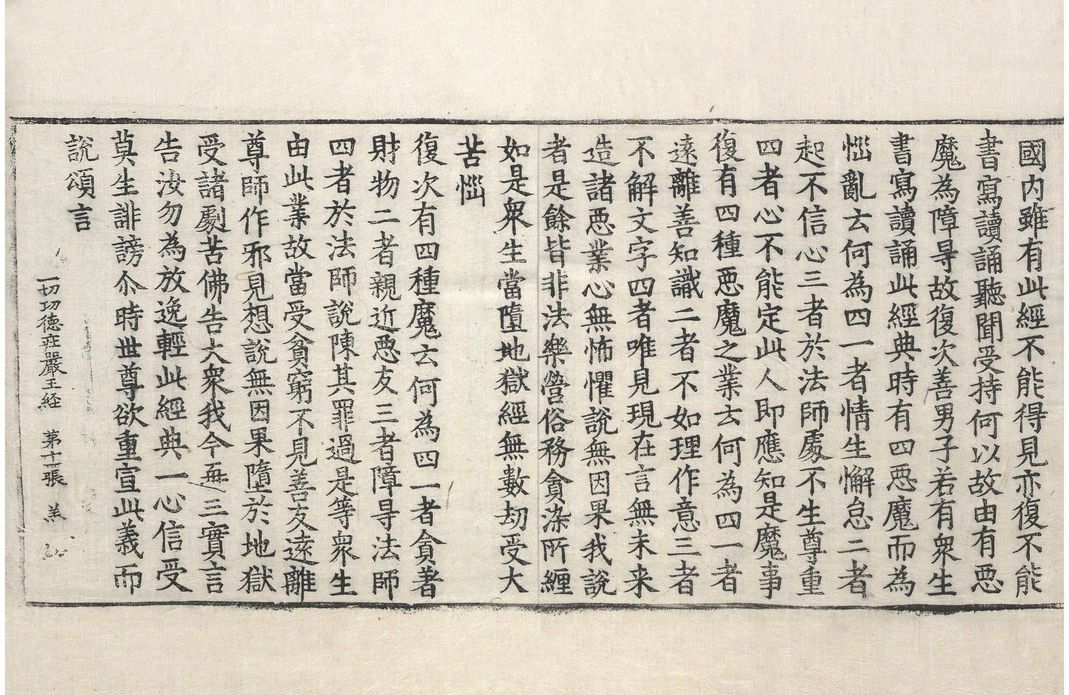 國内雖有此經不能得見亦復不能
書寫讀誦聽聞受持何以故由有惡
魔為障导故復次善男子若有衆生
書寫讀誦此經典時有四惡魔而為
惱亂云何為四一者情生懈怠二者
起不信心三者於法師處不生尊重
四者心不能定此人即應知是魔事
復有四種惡魔之業云何為四一者
遠離善知識二者不如理作意三者
不解文字四者唯見現在言無未来
造諸惡業心無怖懼說無因果我說
者是餘皆非法樂營俗務貪染所纏
如是衆生當墮地獄經無數劫受大
苦惱
復次有四種魔云何為四一者貪著
財物二者親近惡友三者障导法師
四者於法師說陳其罪過是等衆生
由此業故當受貧窮不見善友遠離
尊師作邪見想說無因果墮於地獄
受諸劇苦佛告大衆我今再三實言
告汝勿為放逸輕此經典一心信受
莫生誹謗尒時世尊欲重宣此義而
說頌言
一切功德莊嚴王経 第十一張 羔